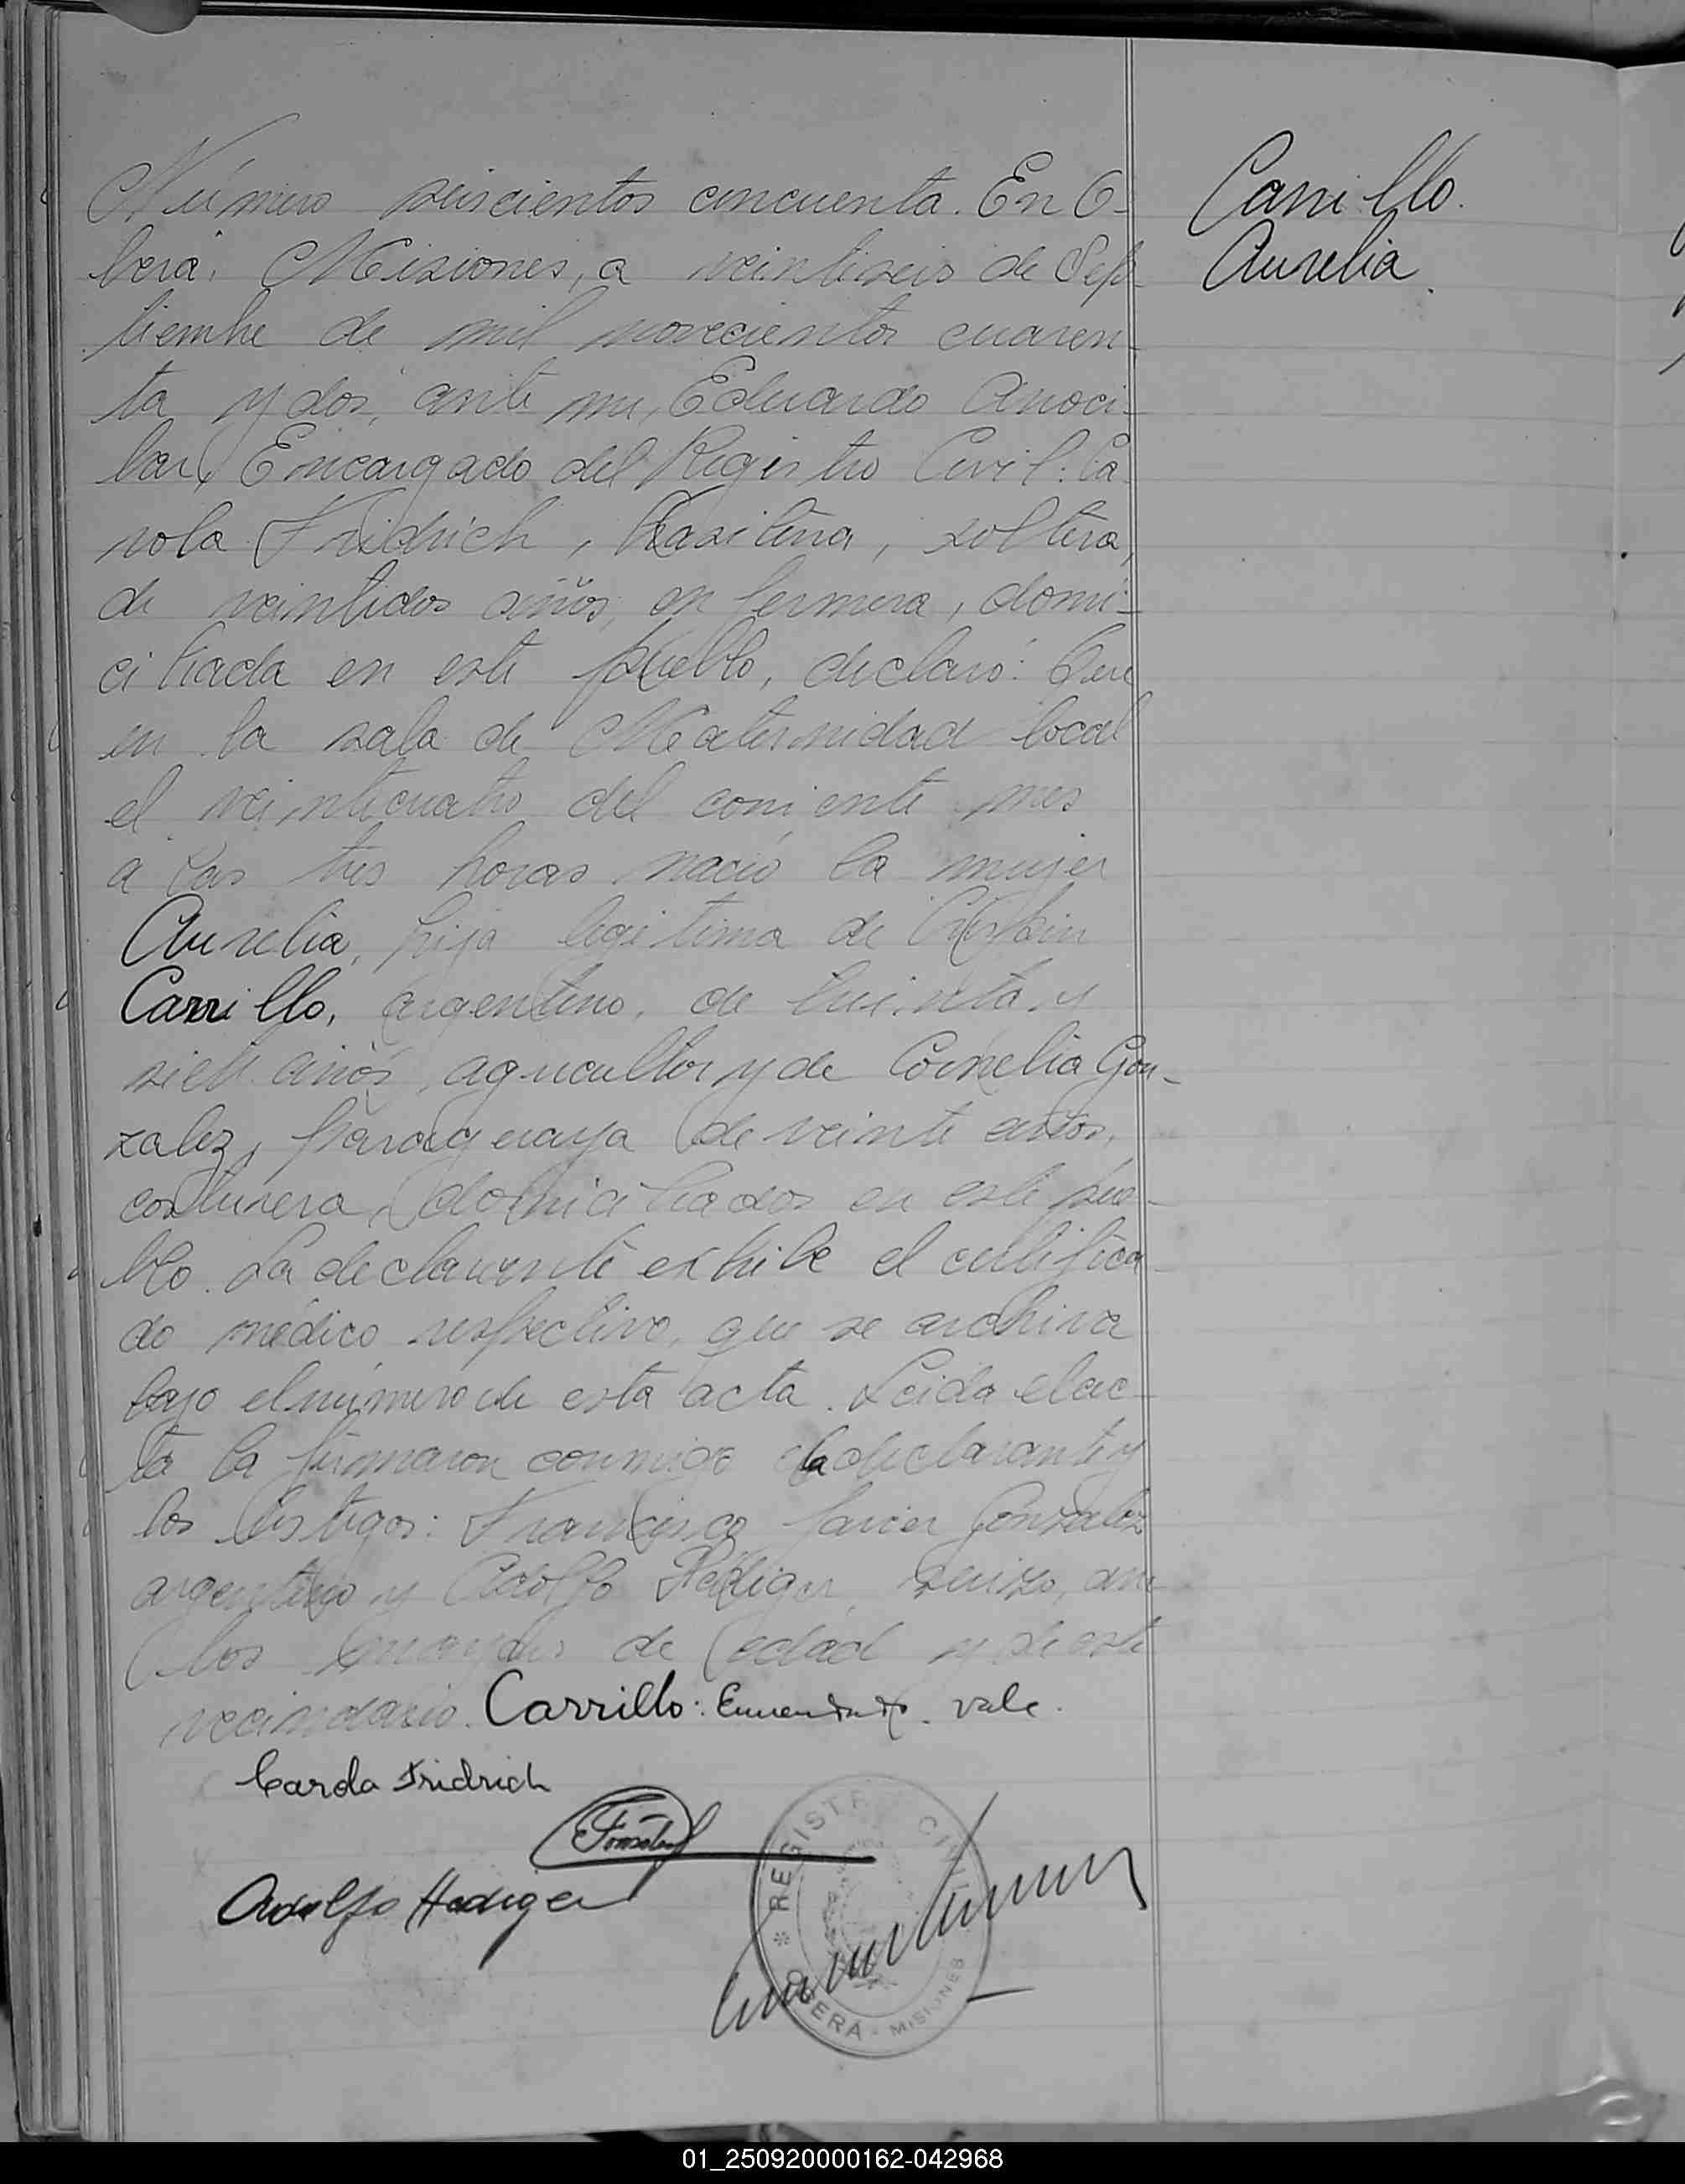 Número seiscientos cincuenta. En O-
berá, Misiones, a veintiseis de Sep-
tiembre de mil novecientos cuaren-
ta y dos, ante mi, Eduardo Anoci-
bar, Encargado del Registro Civil: Ca-
rola Fridrich, brasileña, soltera,
de veintidos años, enfermera, domi-
ciliada en este pueblo, declaró: Que
en la sala de Maternidad local
el veinticuatro del corriente mes
a las tres horas nació la mujer
Aurelia, hija legitima de Crispin
Carrillo, argentino, de treinta y
siete años, agricultor y de Cornelia Gon-
zalez, paraguaya de veinte años,
costurera, domiciliados en este pue-
blo. La declarante exhibe el certifica-
do médico respectivo, que se archiva
bajo el número de esta acta. Leida el ac-
ta la firmaron conmigo la declarante y
los testigos: Francisco Javier Gonzalez
argentino y Adolfo Hediger, suizo, am-
bos mayores de edad y de este
vecindario. Carrillo: Enmendado. vale.
Carola Fridrich
Adolfo Hediger
REGISTRO CIVIL
OBERA - MISIONES
Carrillo.
Aurelia.
01_250920000162-042968